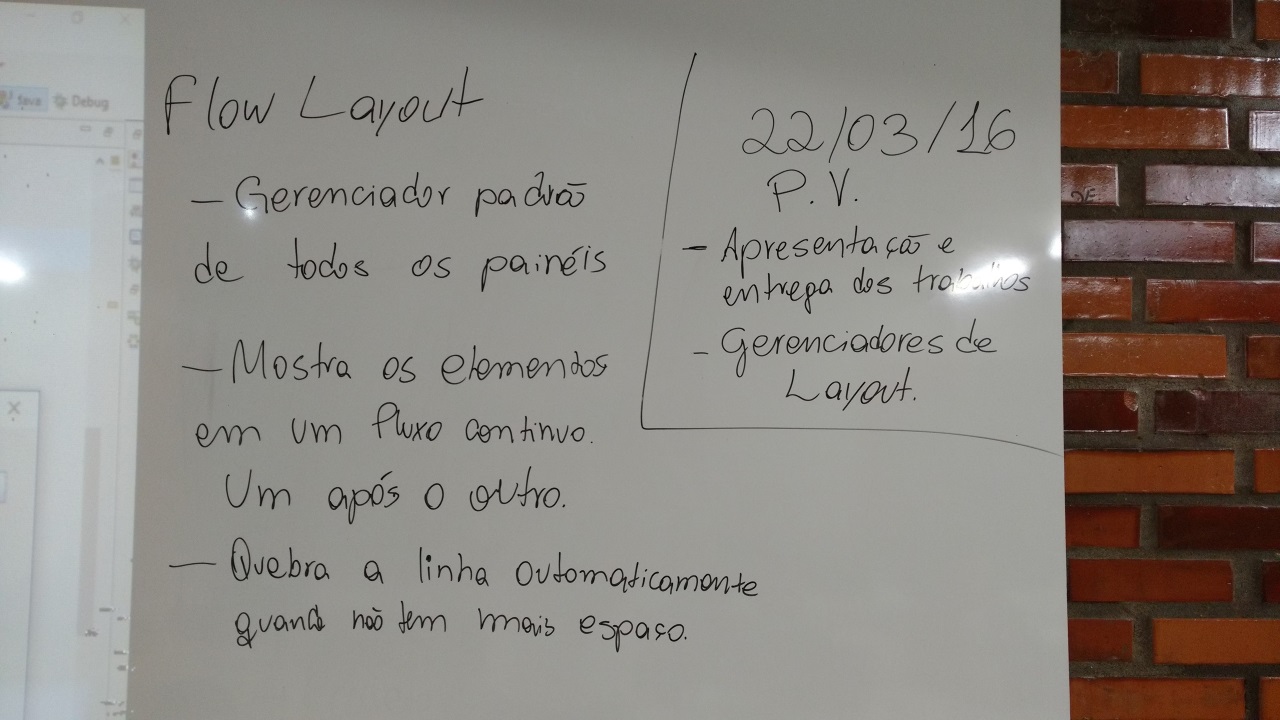 Java Debug
Flow Layout
— Gerenciador padrão
de todos os painéis
— Mostra os elementos
em um fluxo continuo.
Um após o outro.
— Quebra a linha automaticamente
quando não tem mais espaço.
22/03/16
P.V.
- Apresentação e
entrega dos trabalhos
- Gerenciadores de
Layout.